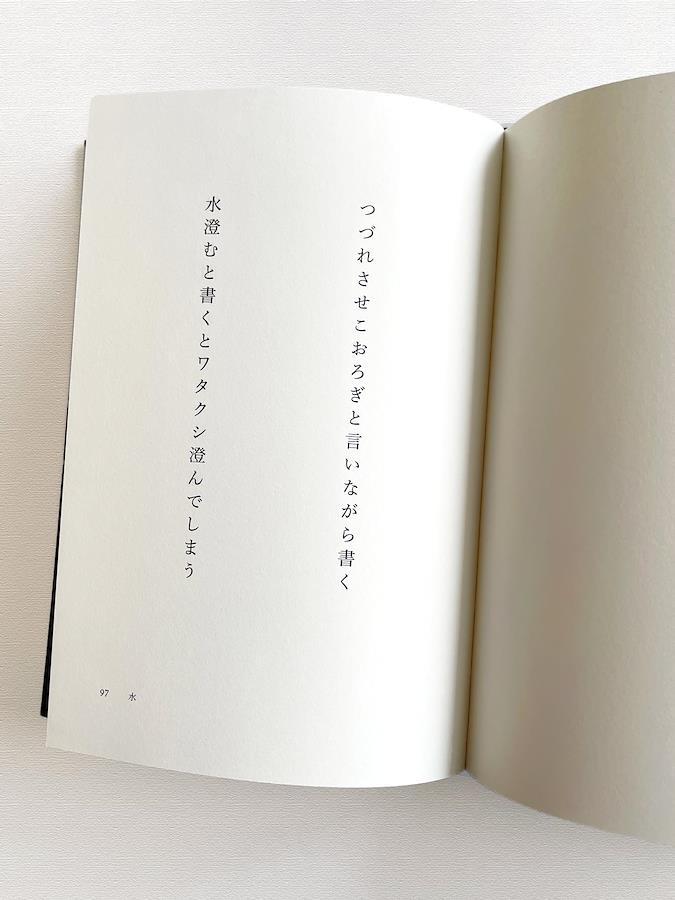 つづれさせこおろぎと言いながら書く
水澄むと書くとワタクシ澄んでしまう
97 水